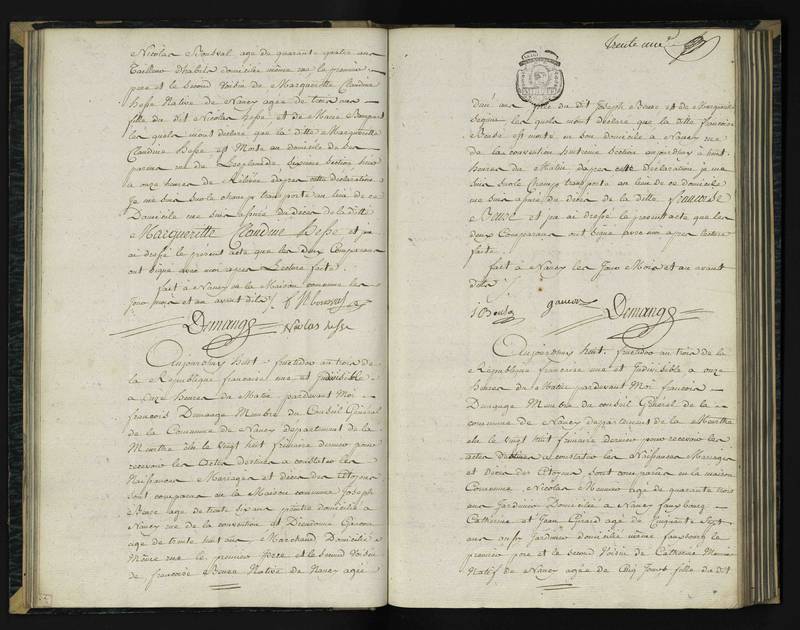 Nicolas Bonval age de quarante quatre ans
Tailleur d'habits domicilié même rue le premier
pere et le second Voisin de Margueritte Claudine
hesse Native de Nancy agée de trois ans
fille du dit Nicolas hesse et de Marie
les quels m'ont declaré que la ditte Marguerite
Claudine hesse est Morte au domicile de ses
parens rue de sixieme section hier
a onze heures de relevée d'apres cette declaration
Je me suis sur le champ transporté au lieu de ce
Domicile me suis assuré du décès de la ditte
Margueritte Claudine hesse et j'en
ai dressé le présent acte que les deux Comparans
ont signé avec moi apres Lecture faite.
fait à Nancy en la Maison commune les
jour mois et an avant dits
Demange Nicolas hesse
Aujourdhuy huit fructidor an trois de
la République francoise une et Indivisible
a onze heures du Matin pardevant Moi
françois Demange Membre du Conseil Général
de la Commune de Nancy departement de la
Meurthe élu le vingt huit frimaire dernier pour
recevoir les Actes destinés a constater les
Naissances Mariages et décès des Citoyens
sont comparus en la Maison commune Joseph
age de trente six ans peintre domicilié a
Nancy rue de la convention et Dieudonné
agé de trente huit ans Marchand Domicilié
Même rue le premier pere et le second Voisin
de francoise Native de Nancy agée
trente une
d'un an fille du dit Joseph et de Marguerite
les quels m'ont declaré que la ditte francoise
est morte en son domicile a Nancy rue
de la convention huitieme Section aujourdhuy à huit
heures du Matin d'apres cette Declaration je me
suis sur le Champ transporté au lieu de ce domicile
me suis assuré du deces de la ditte francoise
et j'en ai dressé le present acte que les
deux Comparans ont signé avec moi apres lecture
faite.
fait à Nancy les Jour Mois et an avant
dits
Demange
Aujourdhuy huit fructidor an trois de la
République francoise une et Indivisible a onze
heures du Matin pardevant Moi francois
Demange Membre du conseil Général de la
commune de Nancy departement de la Meurthe
élu le vingt huit frimaire dernier pour recevoir les
actes destinés a constater les Naissances Mariages
et deces des Citoyens sont comparus en la maison
Commune Nicolas agé de quarante trois
ans Jardinier Domicilié a Nancy fauxbourg
Catherine et Jean Girard agé de Cinquante Sept
ans aussy Jardinier domicilié même fauxbourg le
premier pere et le second Voisin de Catherine
Natif de Nancy agée de Cinq Jours fille du dit